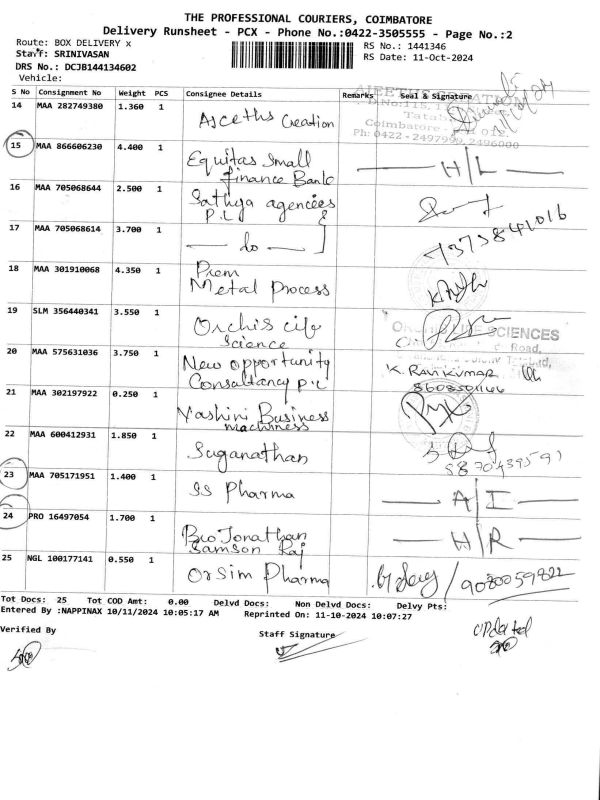 THE PROFESSIONAL COURIERS, COIMBATORE
Delivery Runsheet - PCX - Phone No.:0422-3505555 - Page No.:2
Route: BOX DELIVERY x
RS No.: 1441346
Staff: SRINIVASAN
RS Date: 11-Oct-2024
DRS No.: DCJB144134602
Vehicle:
S No Consignment No Weight PCS Consignee Details Remarks Seal & Signature
14 MAA 282749380 1.360 1 Ajeeths Creation
Coimbatore
Ph: 0422 - 2497999, 2496000
15 MAA 866606230 4.400 1 Equitas Small H/L
Finance Bank
16 MAA 705068644 2.500 1 Sathya agencies
P.L
17 MAA 705068614 3.700 1 — do — 7373841016
18 MAA 301910068 4.350 1 Prem
Metal Process
19 SLM 356440341 3.550 1 Orchis life
Science
SCIENCES
Road,
20 MAA 575631036 3.750 1 New opportunity K. RAVIKUMAR
Consultancy P.L 8608501166
21 MAA 302197922 0.250 1 Yashini Business
machiness
22 MAA 600412931 1.850 1 Suganathan
23 MAA 705171951 1.400 1 SS Pharma A/I
24 PRO 16497054 1.700 1 Bro Jonathan H/R
Samson Raj
25 NGL 100177141 0.550 1 OrSim Pharma 9080059822
Tot Docs: 25 Tot COD Amt: 0.00 Delvd Docs: Non Delvd Docs: Delvy Pts:
Entered By :NAPPINAX 10/11/2024 10:05:17 AM Reprinted On: 11-10-2024 10:07:27
Verified By
Staff Signature
Updated